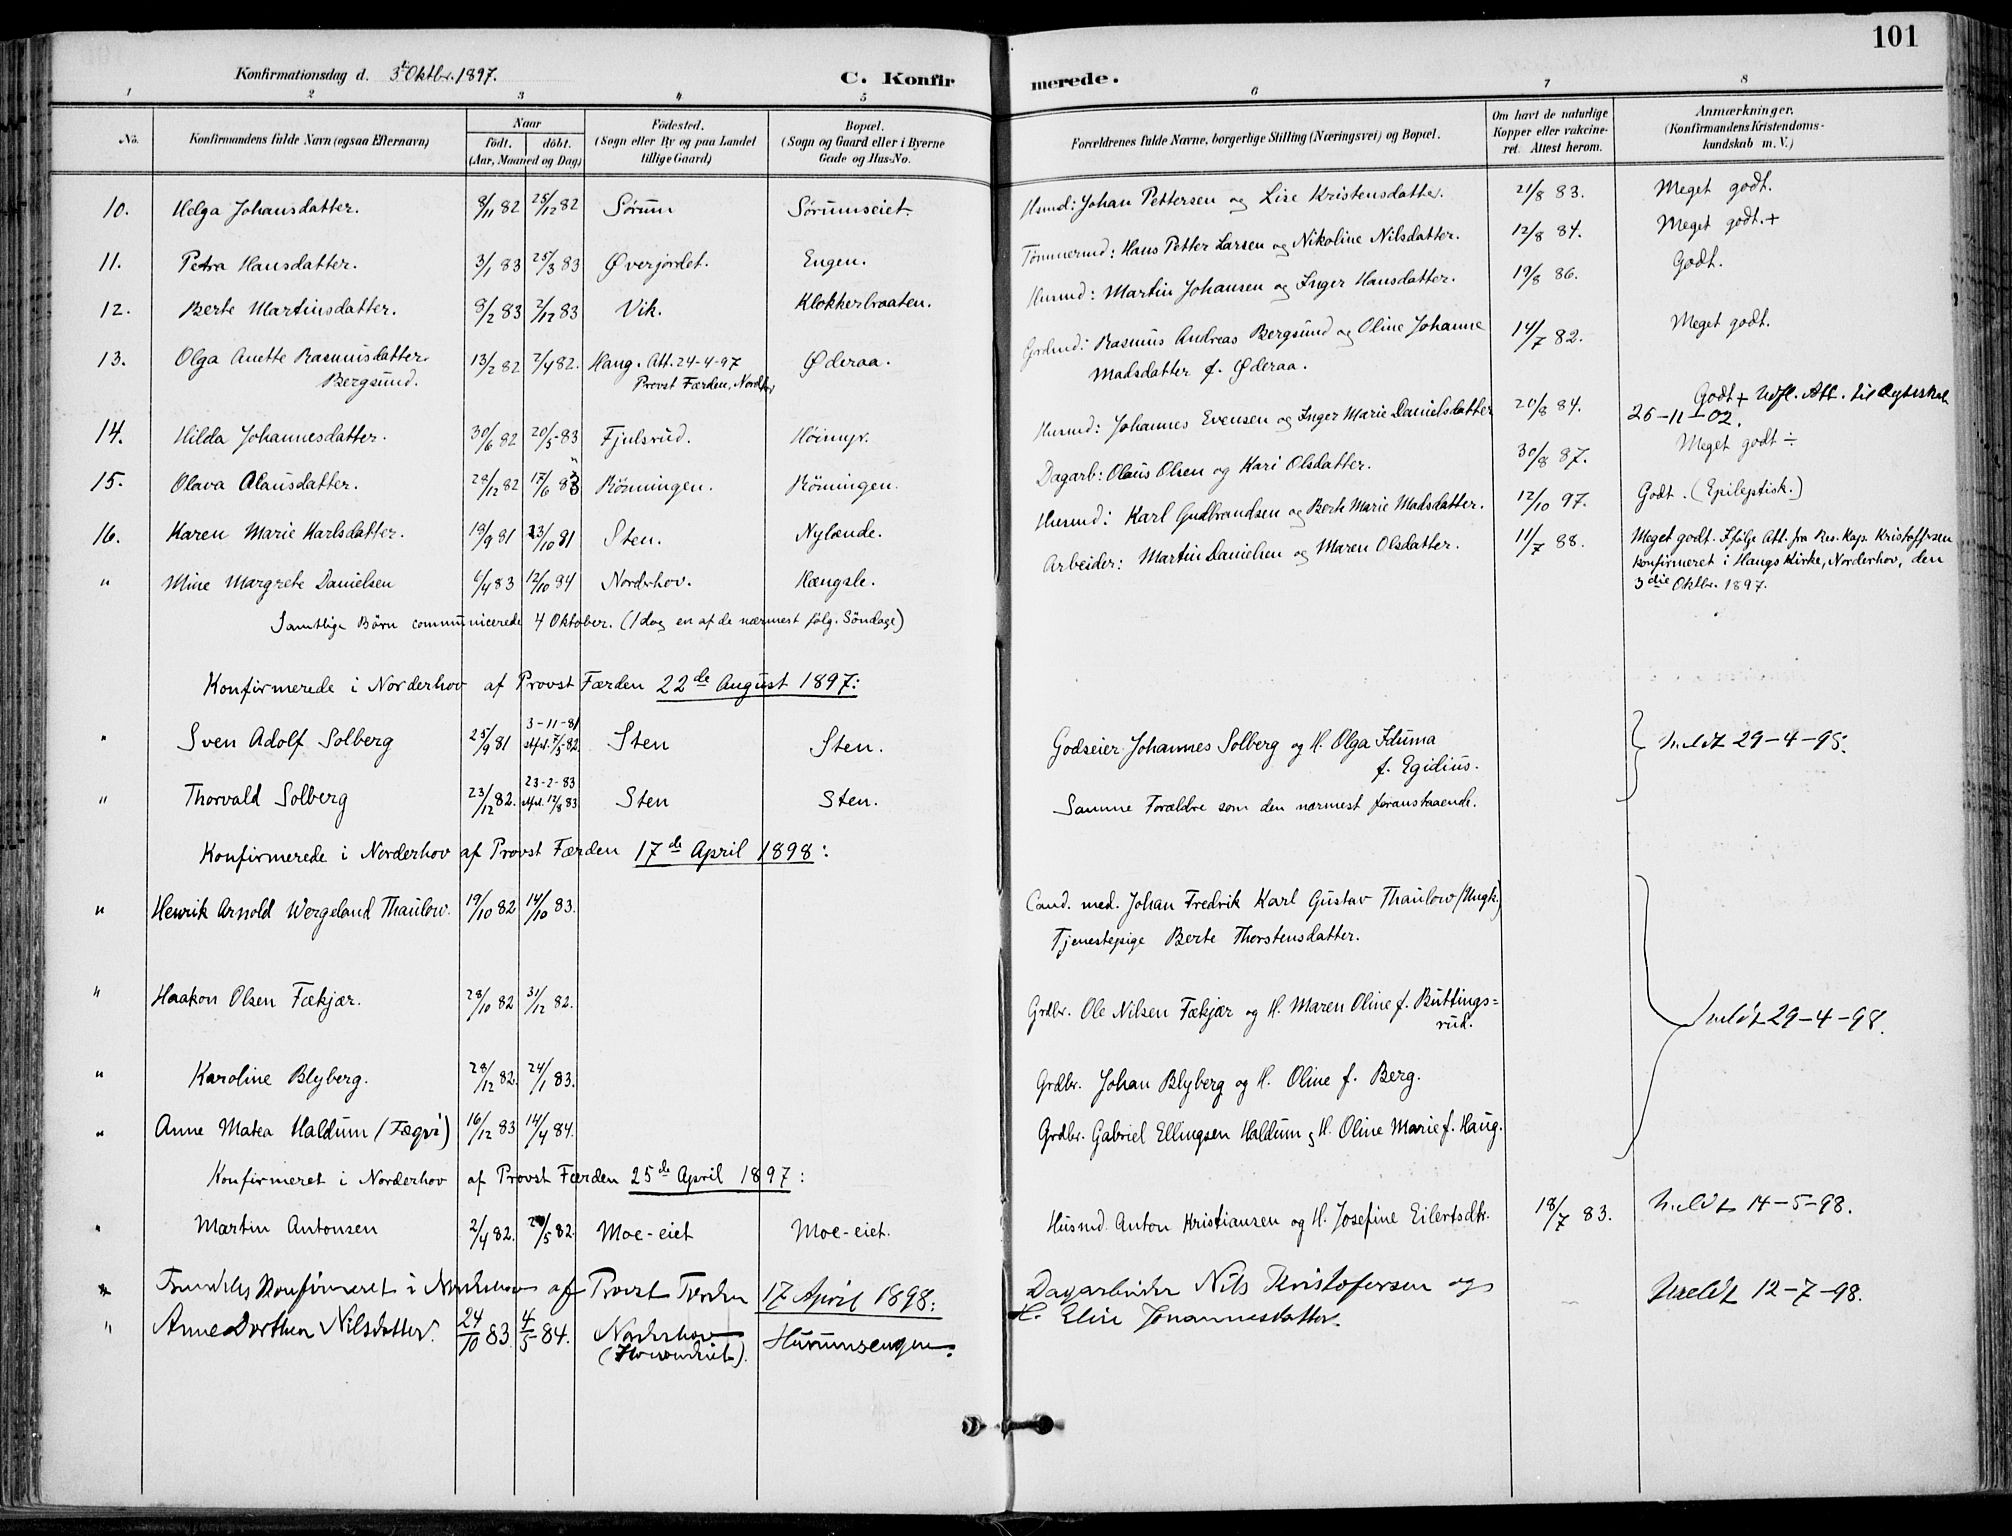 101
Konfirmationsdag d. 3t Oktbr. 1897. C. Konfirmerede.
1 2 3 4 5 6 7 8
No. Konfirmandens fulde Navn (ogsaa Efternavn) Naar født. døbt. (Aar, Maaned og Dag) Fødested. (Sogn eller By og paa Landet tillige Gaard) Bopæl. (Sogn og Gaard eller i Byerne Gade og Hus-No. Forældrenes fulde Navne, borgerlige Stilling (Næringsvei) og Bopæl. Om havt de naturlige Kopper eller vakcineret. Attest herom. Anmærkninger. (Konfirmandens Kristendomskundskab m. V.)
10. Helga Johansdatter. 8/11 82 25/12 82 Sørum Sørumseiet. Husmd: Johan Pettersen og Lise Kristensdatter. 21/8 83. Meget godt.
11. Petra Hansdatter. 3/1 83 25/3 83 Øverjordet. Engen. Tømmermd: Hans Petter Larsen og Nikoline Nilsdatter. 12/8 84. Meget godt.+
12. Berte Martinsdatter. 9/2 83 2/12 83 Vik. Klokkerbraaten. Husmd: Martin Johansen og Inger Hansdatter. 19/8 86. Godt.
13. Olga Anette Rasmusdatter 13/2 82 2/4 82. Haug. Att. 24-4-97 Øderaa. Grdmd: Rasmus Andreas Bergsund og Oline Johanne 14/7 82. Meget godt.
Bergsund. Provst Færden, Nordhov Madsdatter f. Øderaa.
14. Hilda Johannesdatter. 30/6 82 20/5-83 Fjulsrud. Høimyr. Husmd: Johannes Evensen og Inger Marie Danielsdatter 20/8 84. Godt+ Udfl. Att. til
26-11-02.
15. Olava Olausdatter. 28/12 82 17/6 83 Rönningen. Rönningen. Dagarb: Olaus Olsen og Kari Olsdatter. 30/8 87. Meget godt ÷
16. Karen Marie Karlsdatter. 19/9 81 23/10 81 Sten. Nylænde. Husmd: Karl Gudbrandsen og Berte Marie Madsdatter. 12/10 97. Godt. (Epileptisk.)
" Mine Margrete Danielsen 6/4 83 12/10 84 Norderhov. Hængsle. Arbeider: Martin Danielsen og Maren Olsdatter. 11/7 88. Meget godt. Ifølge Att. fra Res. Kap. Kristoffersen
konfirmeret i Haugs Kirke, Norderhov, den
3die Oktbr. 1897.
Samtlige Börn communicerede 4 Oktober. (1 dag en af de nærmest følg. Söndage)
Konfirmerede i Norderhov af Provst Færden 22de August 1897:
" Sven Adolf Solberg 25/9 81 3-11-81 7/5-82 Sten Sten. Godseier Johannes Solberg og H. Olga Iduma meldt 29-4-98.
f. Egidius.
" Thorvald Solberg 23/12 82. 23-2-83 12/8 83 Sten Sten. Samme Forældre som den nærmest foranstaaende.
Konfirmerede i Norderhov af Provst Færden 17de April 1898:
" Henrik Arnold Wergeland Thaulow. 19/10 82 14/10 83. Cand. med. Johan Fredrik Karl Gustav Thaulow (Ungk.)
Tjenestepige Berte Thorstensdatter.
" Haakon Olsen Fækjær. 28/10 82 31/12 82. Grdbr. Ole Nilsen Fækjær og H. Maren Oline f. Buttings= meldt 29-4-98.
rud.
" Karoline Blyberg. 28/12 82. 24/1 83. Grdbr. Johan Blyberg og H. Oline f. Berg.
" Anne Matea Haldum (Fægri) 16/12 83 14/4 84. Grdbr. Gabriel Ellingsen Haldum og H. Oline Marie f. Haug.
Konfirmeret i Norderhov af Provst Færden 25de April 1897:
" Martin Antonsen 2/4 82. /5 82. Moe-eiet Moe-eiet. Husmd. Anton Kristiansen og H. Josefine Eilertsdtr. 18/7 83. Meldt 14-5-98.
" Konfirmeret i Norderhov af Provst Færden 17 April 1898: Dagarbeider Nils Kristofersen og Meldt 12-7-98.
" Anne Dorthea Nilsdatter. 24/10 83 4/5 84. Norderhov Hurumsengen. H. Elise Johannesdatter.